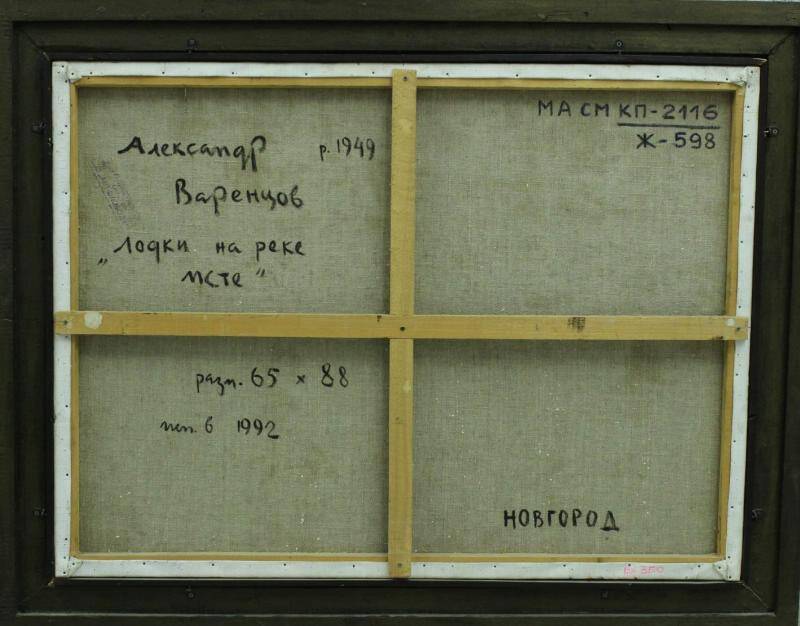 МА СМ КП-2116
Ж-598
Александр р. 1949
Варенцов
„Лодки на реке
Мсте“
разм. 65 × 88
исп. в 1992
НОВГОРОД